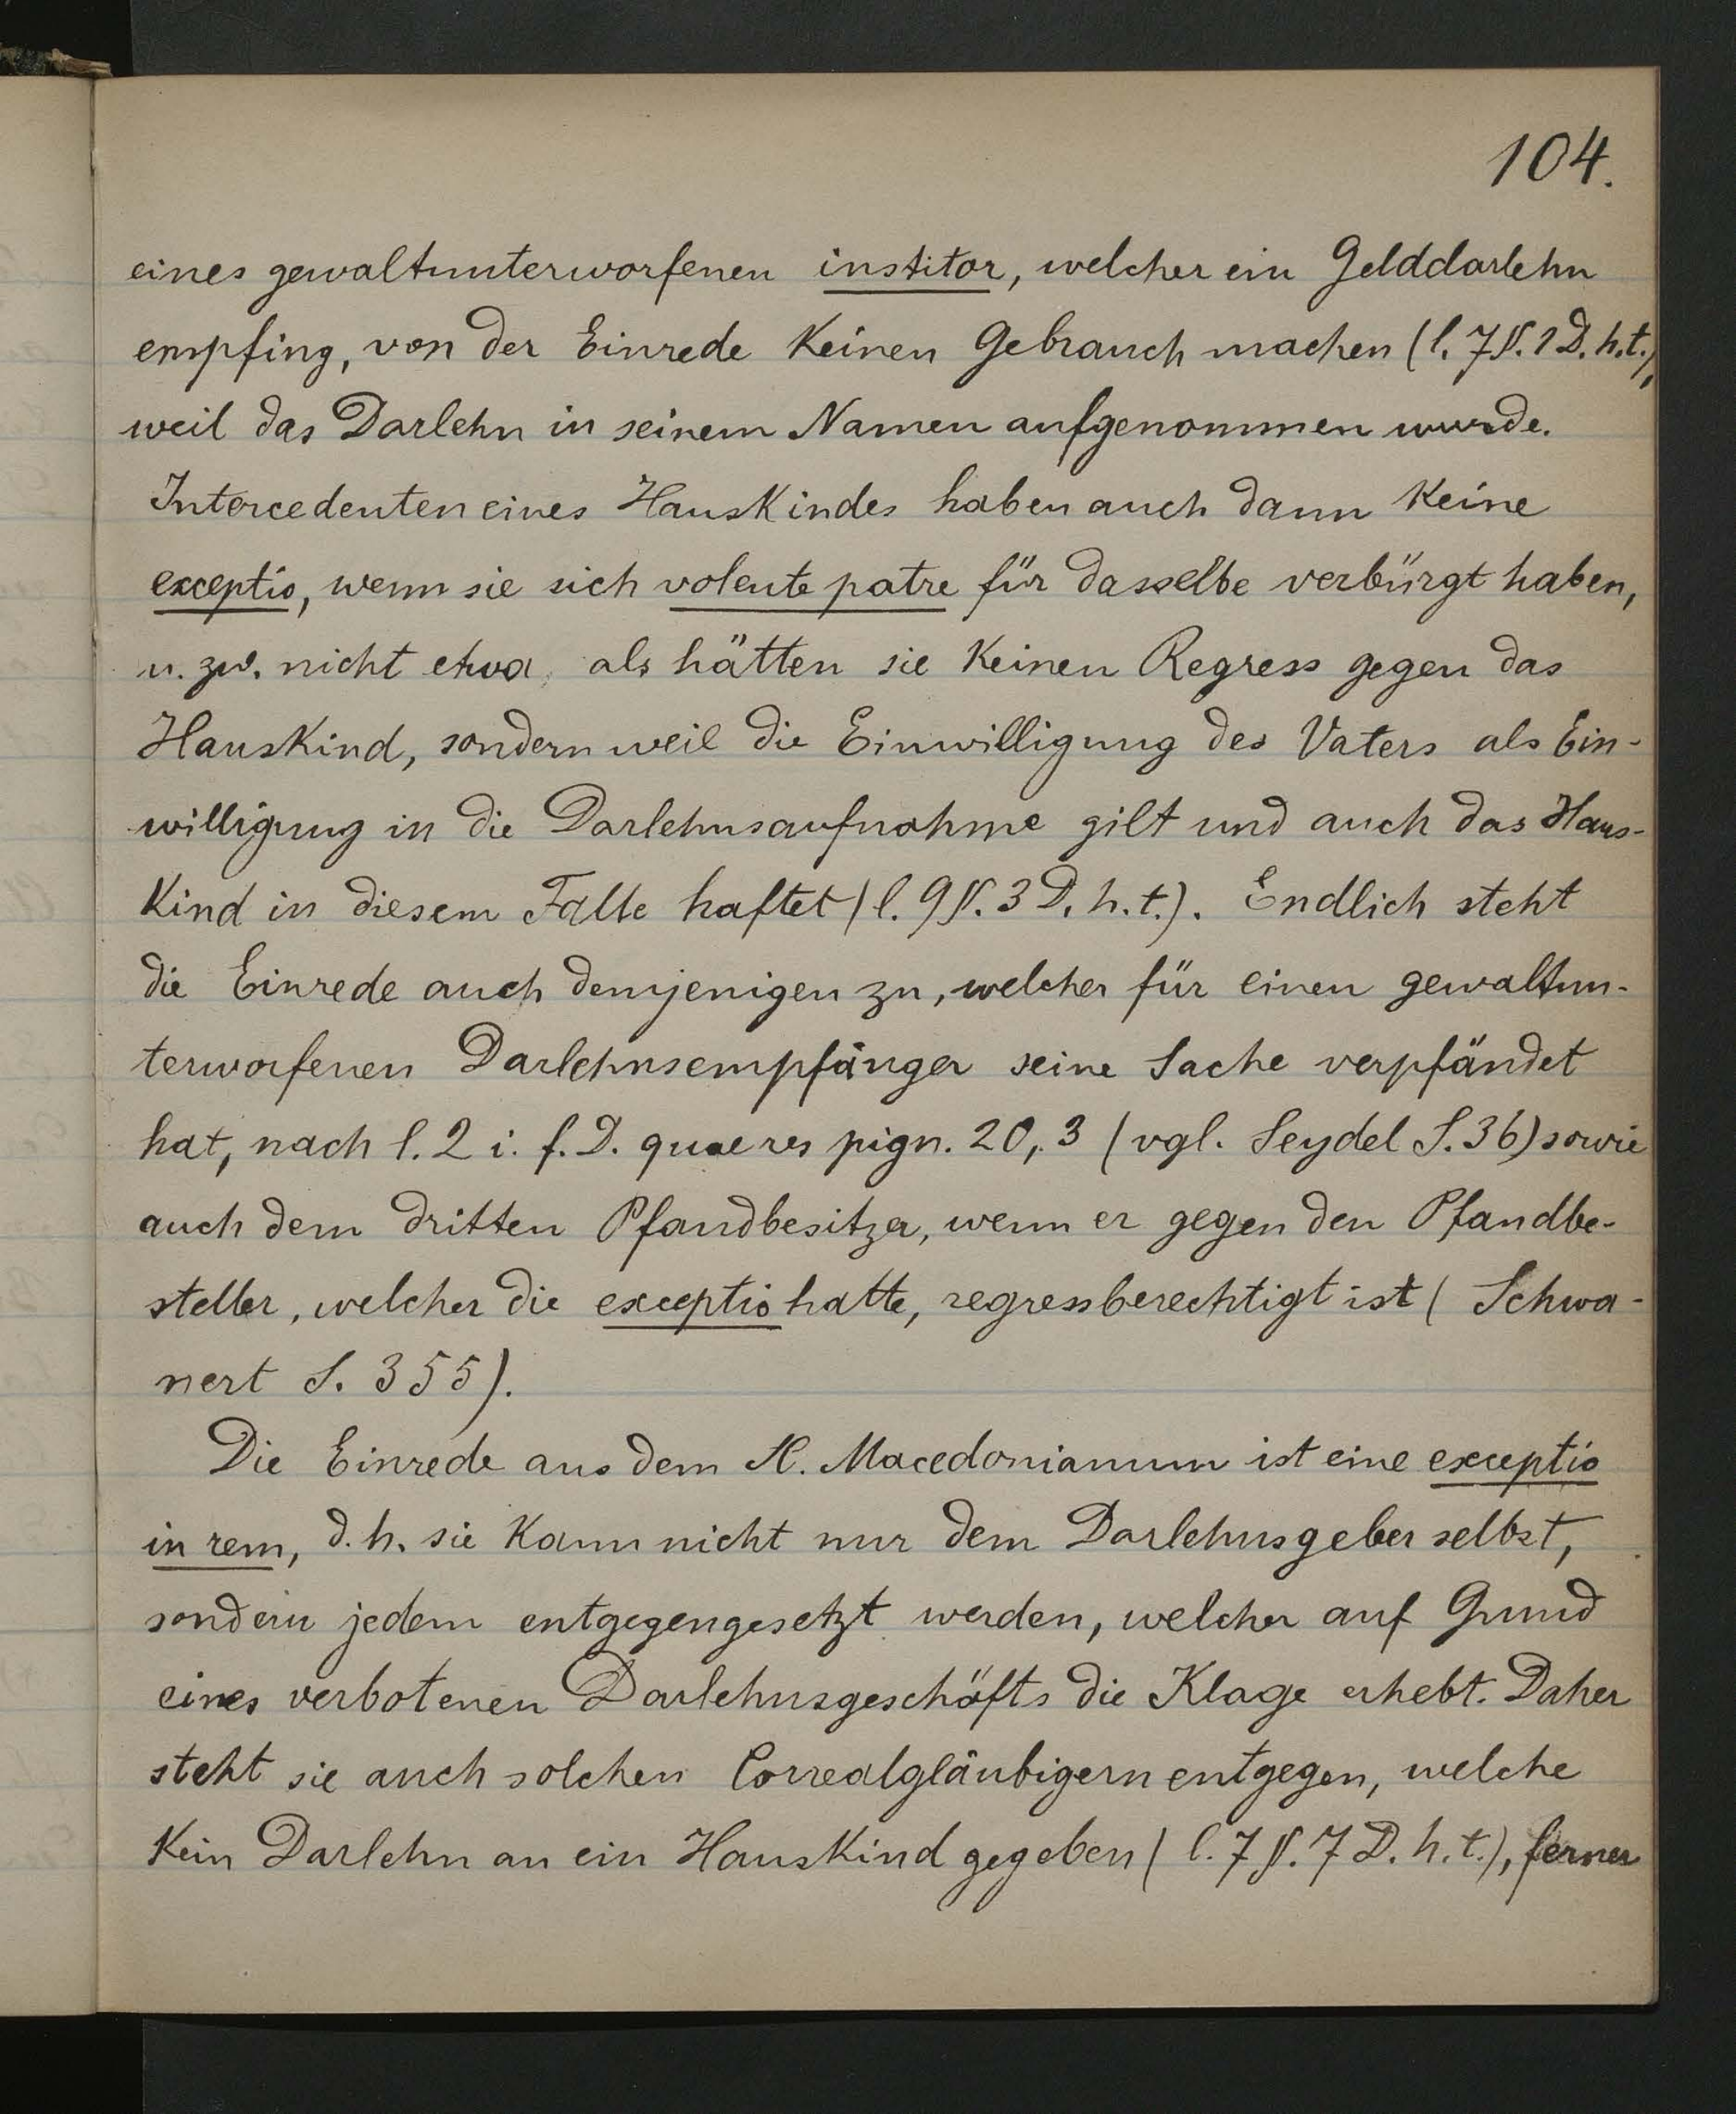 104.
eines gewaltunterworfenen institor, welcher ein Gelddarlehn
empfing, von der Einrede keinen Gebrauch machen (l. 7 §. 1 D. h. t.),
weil das Darlehn in seinem Namen aufgenommen wurde.
Intercedenten eines Hauskindes haben auch dann keine
exceptio, wenn sie sich volente patre für dasselbe verbürgt haben,
u. zw. nicht etwa, als hätten sie keinen Regress gegen das
Hauskind, sondern weil die Einwilligung des Vaters als Ein-
willigung in die Darlehnsaufnahme gilt und auch das Haus-
kind in diesem Falle haftet (l. 9 §. 3 D. h. t.). Endlich steht
die Einrede auch demjenigen zu, welcher für einen gewaltun-
terworfenen Darlehnsempfänger seine Sache verpfändet
hat, nach l. 2 i. f. D. quae res pign. 20, 3 (vgl. Seydel S. 36) sowie
auch dem dritten Pfandbesitzer, wenn er gegen den Pfandbe-
steller, welcher die exceptio hatte, regressberechtigt ist (Schwa-
nert S. 355).
Die Einrede aus dem SC. Macedonianum ist eine exceptio
in rem, d. h. sie kann nicht nur dem Darlehnsgeber selbst,
sondern jedem entgegengesetzt werden, welcher auf Grund
eines verbotenen Darlehnsgeschäfts die Klage erhebt. Daher
steht sie auch solchen Correalgläubigern entgegen, welche
kein Darlehn an ein Hauskind gegeben (l. 7 §. 7 D. h. t.), ferner